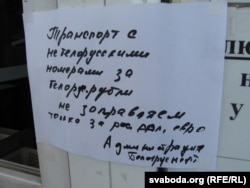 Транспорт с
не белорусскими
номерами за
белор. рубли
не заправляем
только за рос, дол, евро
Администрация
Белоруснефть
лю
н
у
svaboda.org (RFE/RL)